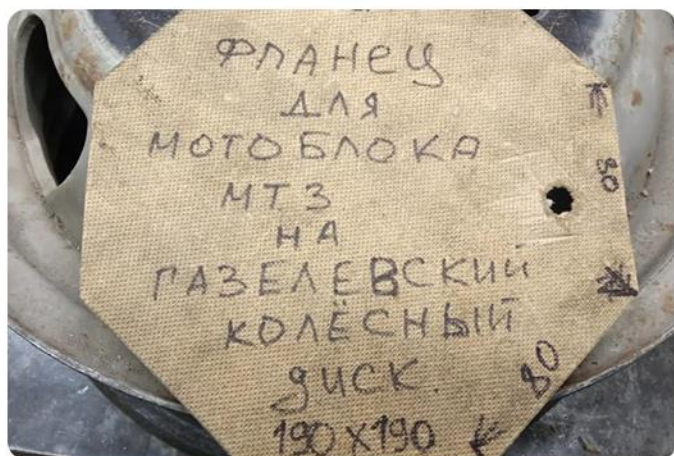 ФЛАНЕЦ
ДЛЯ
МОТОБЛОКА
МТЗ
НА
ГАЗЕЛЕВСКИЙ
КОЛЁСНЫЙ
ДИСК.
190Х190
80
80